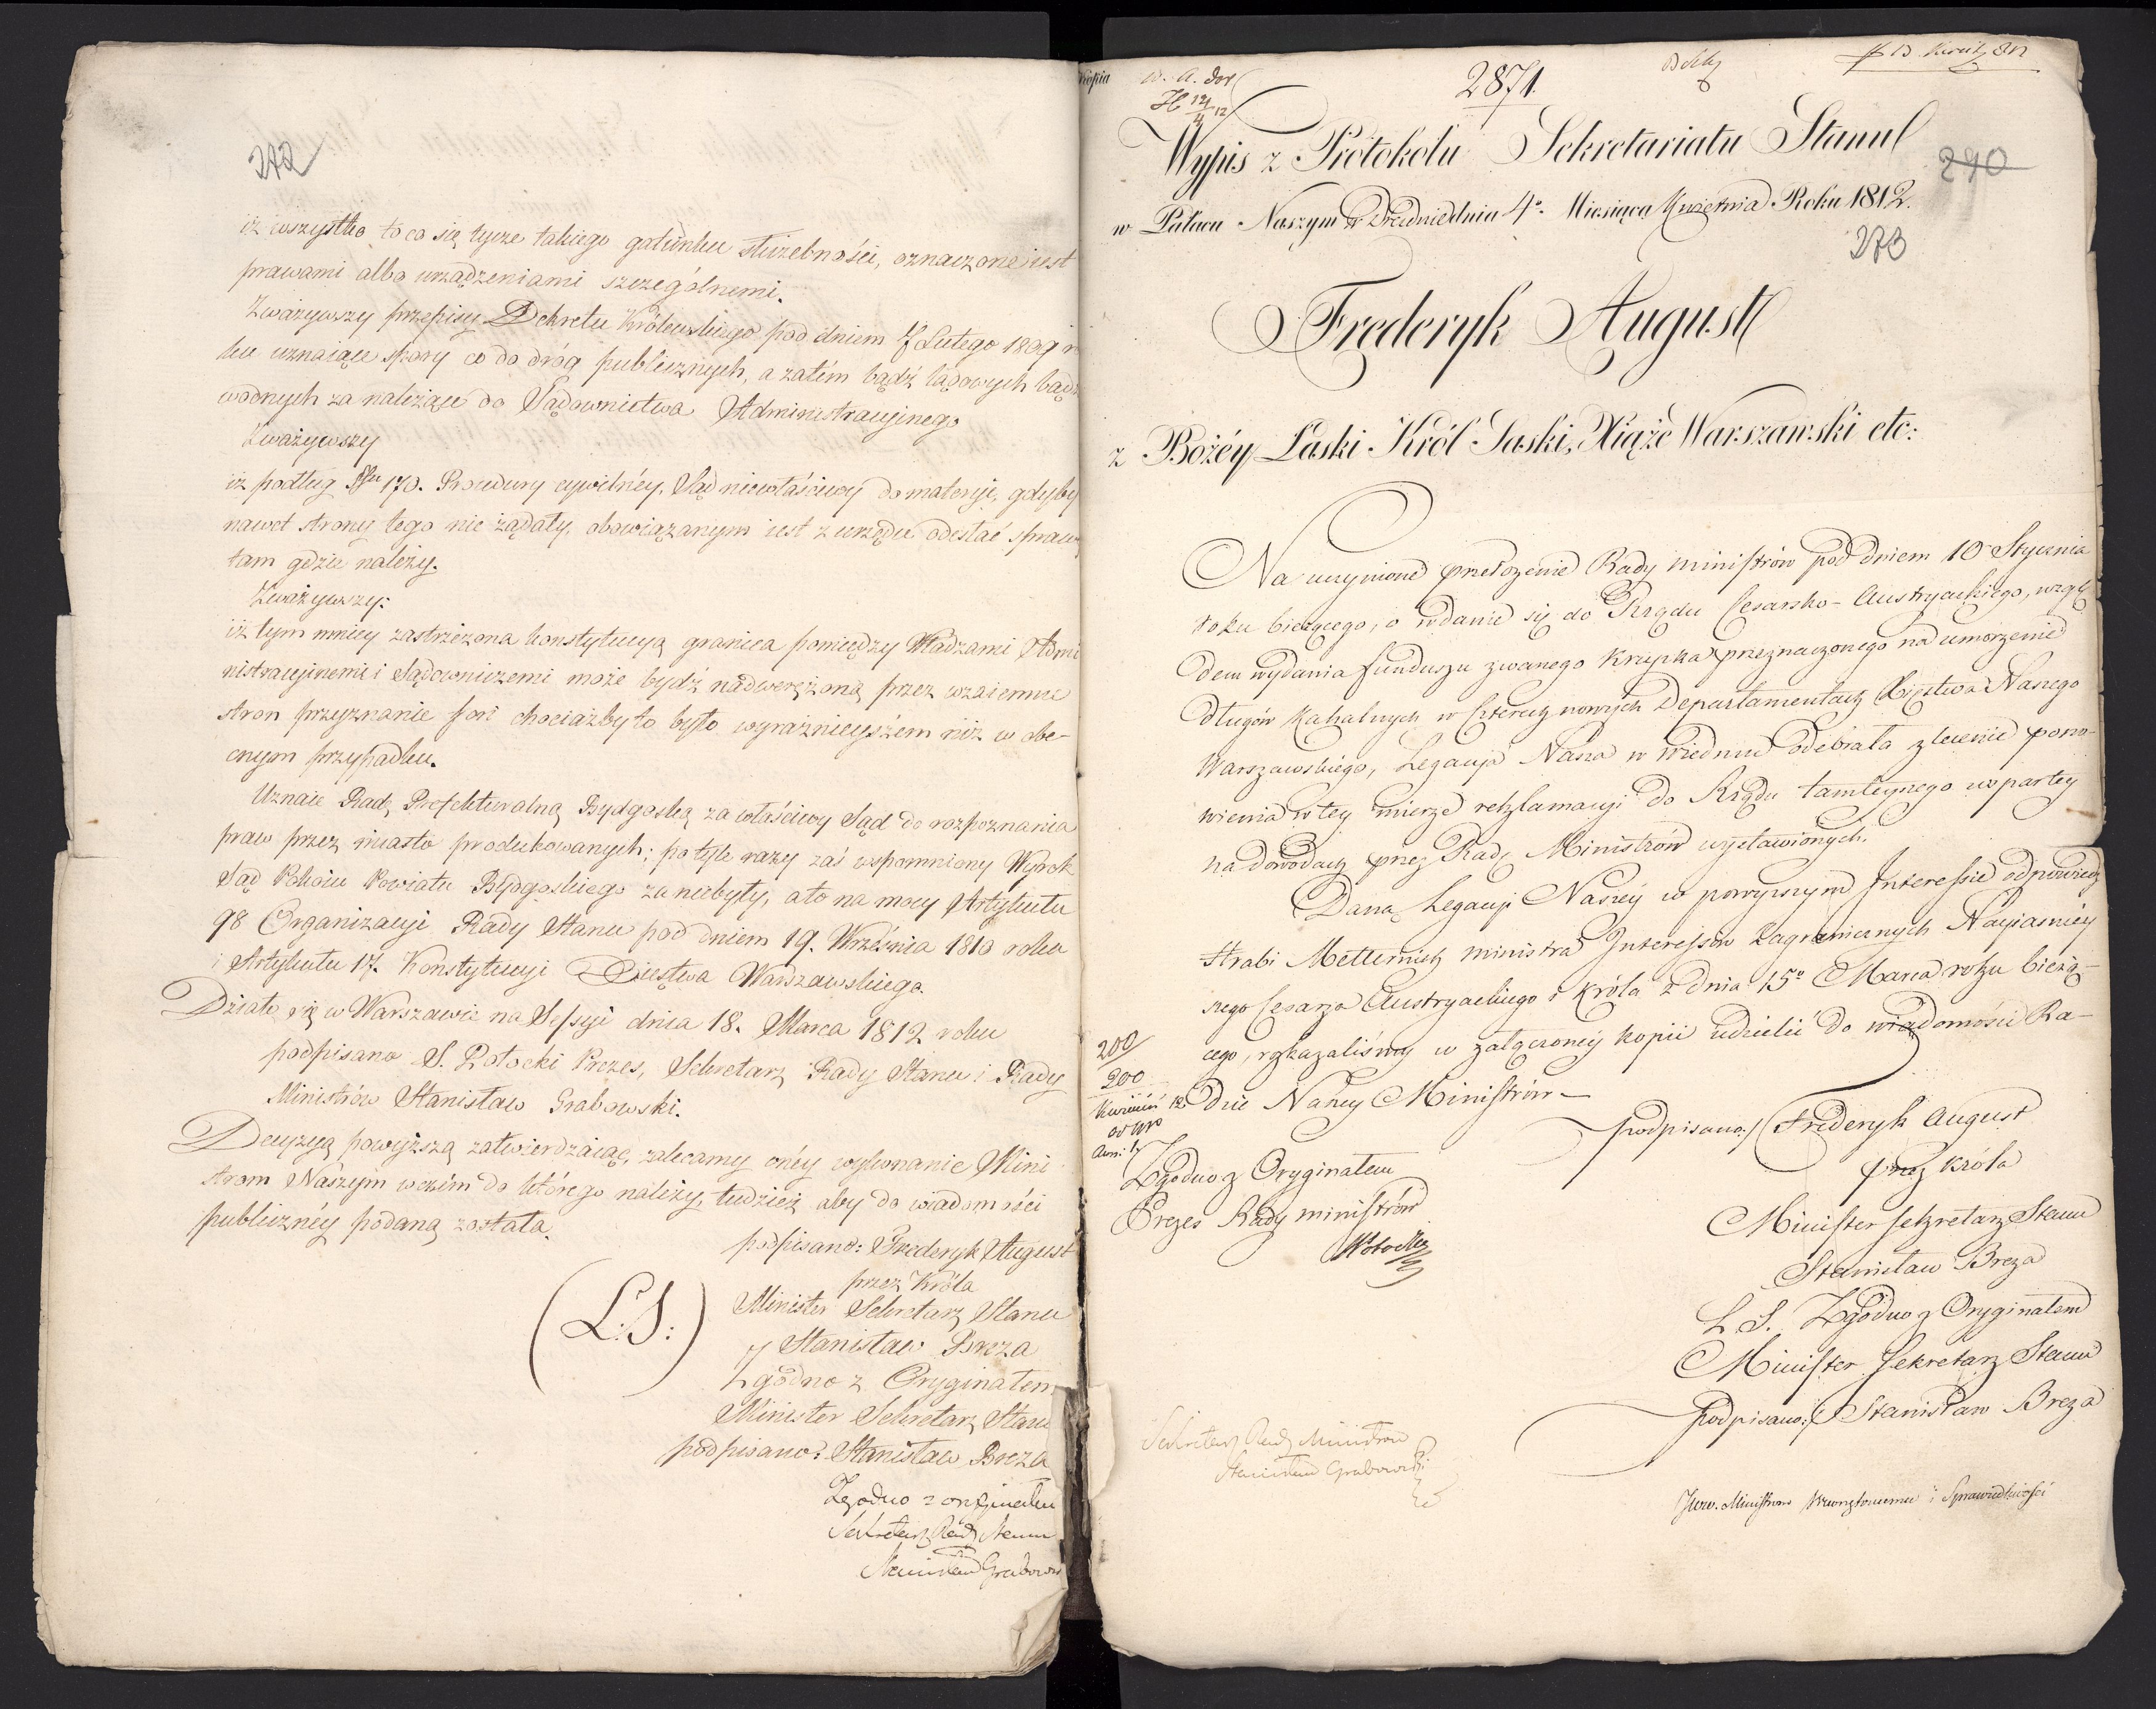 272
iż wszystko to co się tycze takiego gatunku służebności, oznaczone iest
prawami albo urządzeniami szczególnemi.
Zważywszy przepisy Dekretu Królewskiego pod dniem 7 Lutego 1809 ro
ku uznaiące spory co do dróg publicznych, a zatém bądź lądowych bądź
wodnych za należące do Sądownictwa Administracyjnego
Zważywszy
iż podług 170. Procedury cywilnéy, Sąd niewłaściwy do materyi, gdyby
nawet strony tego nie żądały, obowiązanym iest z urzędu odesłać sprawę
tam gdzie należy.
Zważywszy:
iż tym mniey zastrzeżona konstytucyą granica pomiędzy Władzami Admi
nistracyjnemi i Sądowniczemi może bydź nadwerężoną przez wzaiemne
stron przyznanie fori chociażby to było wyraźnieyszém niż w obe-
cnym przypadku.
Uznaie Radę Prefekturalną Bydgoską za właściwy Sąd do rozpoznania
praw przez miasto produkowanych; po tyle razy zaś wspomniony Wyrok
Sąd Pokoiu Powiatu Bydgoskiego za niebyły, a to na mocy Artykułu
98 Organizacyi Rady Stanu pod dniem 19. Września 1810 roku
i Artykułu 17. Konstytucyi Xięstwa Warszawskiego.
Działo się w Warszawie na Sessyi dnia 18. Marca 1812 roku
podpisano S. Potocki Prezes, Sekretarz Rady Stanu i Rady
Ministrów Stanisław Grabowski.
Decyzyą powyższą zatwierdzaiąc, zalecamy onéy wykonanie Mini
strom Naszym w czém do którego należy, tudzież aby do wiadomości
publicznéy podaną została.
podpisano: Frederyk August
przez Króla
(L:S:) Minister Sekretarz Stanu
Stanisław Breza
Zgodno z Oryginałem
Minister Sekretarz Stanu
podpisano: Stanisław Breza
Zgodno z oryginałem
Sekretarz Rady Stanu
Stanisław Grabows
Kopia
2871.
Wypis z Protokołu Sekretariatu Stanu
240
w Pałacu Naszym w Dreźnie dnia 4o. Miesiąca Kwietnia Roku 1812.
273
Frederyk August
z Bożéy Łaski Król Saski, Xiąże Warszawski etc:
Na uczynione przełożenie Rady ministrów pod dniem 10 Stycznia
roku bieżącego, o udanie się do Rządu Cesarsko-Austryackiego, wzglę
dem wydania funduszu zwanego Krupka przeznaczonego na umorzenie
długów Kahalnych w czterech nowych Departamentach Xięstwa Naszego
Warszawskiego, Legacya Nasza w Wiedniu odebrała zlecenie pono-
wienia w tey mierze reklamacyi do Rządu tamteyszego wspartey
na dowodach przez Radę Ministrów wystawionych.
Daną Legacyi Naszey w powyższym Interessie odpowiedź
Hrabi Metternich ministra Interessów Zagranicznych Nayiaśniey
szego Cesarza Austryackiego i Króla z dnia 15o Marca roku bieżą-
cego, rozkazaliśmy w załączoney kopii udzielić do wiadomości Ra-
dzie Naszey Ministrów —
200
200
podpisano:/ Frederyk August
przez Króla
Zgodno z Oryginałem
Prezes Rady ministrów
Minister Sekretarz Stanu
Stanisław Breza
L.S. Zgodno z Oryginałem
Minister Sekretarz Stanu
podpisano:/ Stanisław Breza
Sekretarz Rady Ministrów
Stanisław Grabowski